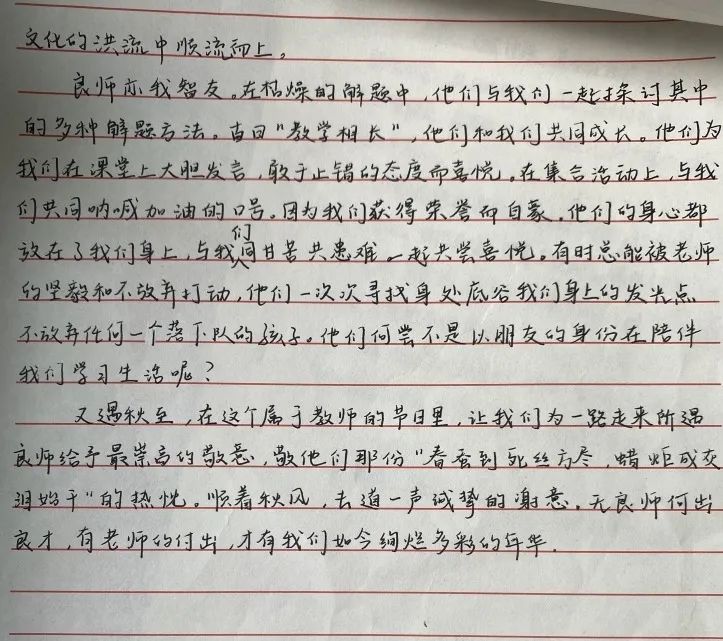 文化的洪流中顺流而上。
良师亦我智友。在枯燥的解题中，他们与我们一起探讨其中
的多种解题方法。古曰“教学相长”，他们和我们共同成长。他们为
我们在课堂上大胆发言，敢于止错的态度而喜悦。在集合活动上，与我
们共同呐喊加油的口号。因为我们获得荣誉而自豪。他们的身心都
放在了我们身上，与我们同甘苦共患难。一起共尝喜悦。有时总能被老师
的坚毅和不放弃打动，他们一次次寻找身处底谷我们身上的发光点
不放弃任何一个落下队的孩子。他们何尝不是以朋友的身份在陪伴
我们学习生活呢？
又遇秋至，在这个属于教师的节日里，让我们为一路走来所遇
良师给予最崇高的敬意，敬他们那份“春蚕到死丝方尽，蜡炬成灰
泪始干”的热忱。顺着秋风，去道一声诚挚的谢意。无良师何出
良才，有老师的付出，才有我们如今绚烂多彩的年华.